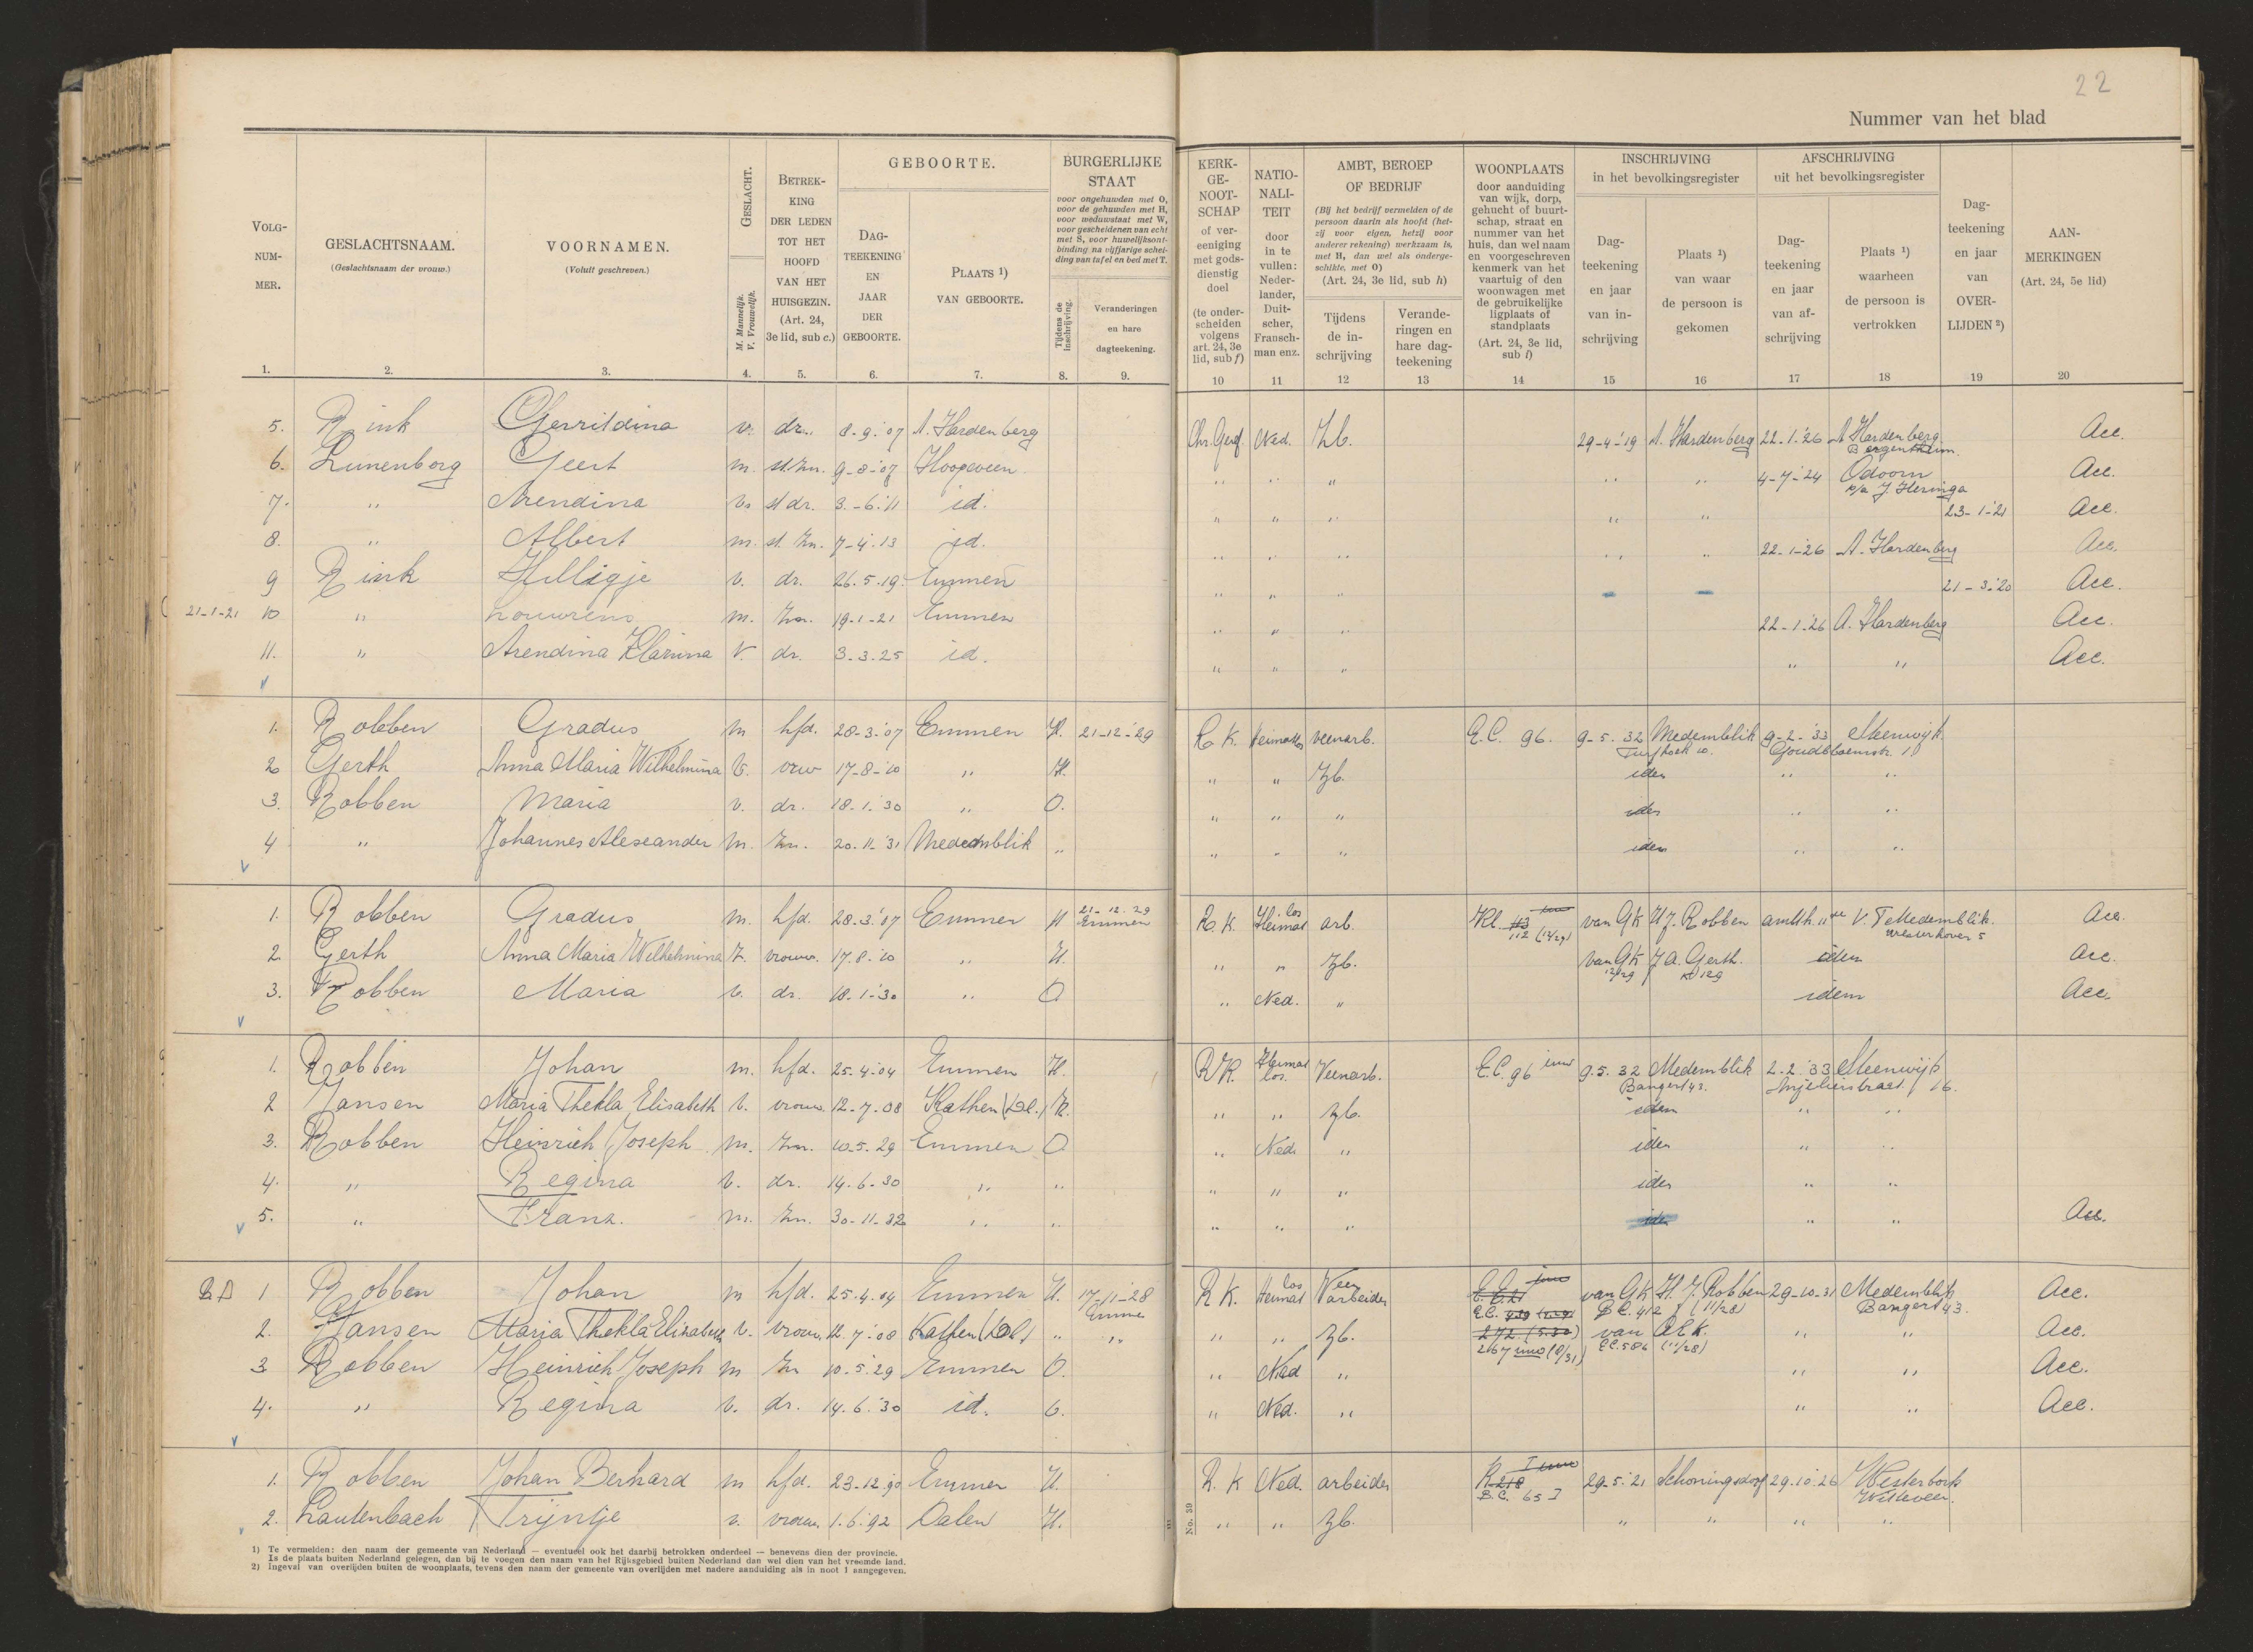 22
Nummer van het blad
VOLG-NUM-MER.
GESLACHTSNAAM.
(Geslachtsnaam der vrouw.)
VOORNAMEN.
(Voluit geschreven.)
GESLACHT.
M. Mannelijk.
V. Vrouwelijk.
BETREK-KING DER LEDEN TOT HET HOOFD VAN HET HUISGEZIN.
(Art. 24, 3e lid, sub c.)
GEBOORTE.
DAG-TEEKENING EN JAAR DER GEBOORTE.
PLAATS 1) VAN GEBOORTE.
BURGERLIJKE STAAT
voor ongehuwden met O, voor de gehuwden met H, voor weduwstaat met W, voor gescheidenen van echt met S, voor huwelijksont-binding na vijfjarige schei-ding van tafel en bed met T.
Tijdens de inschrijving.
Veranderingen en hare dagteekening.
KERK-GE-NOOT-SCHAP
of ver-eeniging met gods-dienstig doel
(te onder-scheiden volgens art. 24, 3e lid, sub f)
NATIO-NALI-TEIT
door in te vullen: Neder-lander, Duit-scher, Fransch-man enz.
AMBT, BEROEP OF BEDRIJF
(Bij het bedrijf vermelden of de persoon daarin als hoofd (het-zij voor eigen, hetzij voor anderer rekening) werkzaam is, met H, dan wel als onderge-schikte, met O)
(Art. 24, 3e lid, sub h)
Tijdens de in-schrijving
Verande-ringen en hare dag-teekening
WOONPLAATS
door aanduiding van wijk, dorp, gehucht of buurt-schap, straat en nummer van het huis, dan wel naam en voorgeschreven kenmerk van het vaartuig of den woonwagen met de gebruikelijke ligplaats of standplaats
(Art. 24, 3e lid, sub i)
INSCHRIJVING in het bevolkingsregister
Dag-teekening en jaar van in-schrijving
Plaats 1) van waar de persoon is gekomen
AFSCHRIJVING uit het bevolkingsregister
Dag-teekening en jaar van af-schrijving
Plaats 1) waarheen de persoon is vertrokken
Dag-teekening en jaar van OVER-LIJDEN 2)
AAN-MERKINGEN
(Art. 24, 5e lid)
1. 2. 3. 4. 5. 6. 7. 8. 9. 10 11 12 13 14 15 16 17 18 19 20
5. Rink Gerritdina v. dr. 8-9-'07 A. Hardenberg Chr. Geref. Ned. Zb. 29-4-'19 A. Hardenberg 22-1-'26 A Hardenberg Acc.
Bergentheim.
6. Lunenborg Geert m. st.zn. 9-8-'07 Hoogeveen " " " " " 4-7-'24 Odoorn Acc.
p/a J. Heringa
7. " Arendina v. st dr. 3-6-'11 id. " " " " " 23-1-'21 Acc.
8. " Albert m. st. zn. 7-4-'13 id. " " " " " 22-1-26 A. Hardenberg Acc.
9 Rink Hilligje v. dr. 26.5.19. Emmen " " " - - 21-3-'20 Acc.
21-1-21 10 " Louwrens m. zn. 19-1-21 Emmen " " " 22-1-'26 A. Hardenberg Acc.
11. " Arendina Klarina V. dr. 3.3.25 id. " " " " " Acc.
1. Robben Gradus m hfd. 28-3-'07 Emmen H. 21-12-'29 R. K. Heimatlos veenarb. E.C. 96. 9-5.32 Medemblik 9-2-'33 Steenwijk
Turfhoek 10. Goudsbloemstr. 10
2 Gerth Anna Maria Wilhelmina V. vrw 17-8-'10 " H. " " Zb. idem " "
3. Robben Maria v. dr. 18.1.'30 " O. " " " idem " "
4 " Johannes Alexander m. zn. 20.11.'31 Medemblik " " " " idem " "
1. Robben Gradus m. hfd. 28-3-'07 Emmen H 21-12.29 Emmen R. K. Heimatlos arb. Kl. 112 (12/29) van GK H J. Robben V. T Medemblik. Acc.
Westerhaven 5
2 Gerth Anna Maria Wilhelmina V. vrouw. 17.8.'10 " H. " " Zb. van GK J A. Gerth. idem Acc.
12/29 Kl 129
3. Robben Maria v. dr. 18.1-'30 " O " Ned. " idem Acc.
1. Robben Johan m. hfd. 25-4-'04 Emmen H. R K. Heimatlos. Veenarb. E.C. 96 9.5.32 Medemblik 2.2.'33 Steenwijk
Bangert 43. Anjelierstraat 16.
2 Jansen Maria Thekla Elisabeth V. vrouw 12-7-08 Kathen (Dl.) H. " " Zb. idem " "
3. Robben Heinrich Joseph m. zn. 10-5-29 Emmen O " Ned. " idem " "
4. " Regina v. dr. 14-6-30 " " " " " idem " "
5. " Franz. m. zn. 30-11-32 " " " " " idem " " Acc.
1 Robben Johan m hfd. 25.4.04 Emmen H. 17-11-'28 Emmen R K. Heimatlos Veenarbeider E.C. 21 van GK H. J. Robben 29-10-31 Medemblik Acc.
E.C. 412 (11/28) Bangert 43.
2. Jansen Maria Thekla Elisabeth v. vrouw 12.7.'08 Kathen (Dl.) " " " " Zb. 272 (5.30) van " " Acc.
267 (8/31) E.C. 586 (11/28)
3 Robben Heinrich Joseph m zn 10.5.'29 Emmen O. " Ned " " " Acc.
4. " Regina v. dr. 14.6.'30 id. O. " Ned. " " " Acc.
1. Robben Johan Berhard m hfd. 23-12-'90 Emmen H. R. K Ned. arbeider R 218 29-5-'21 Schoningsdorf 29.10.'26 Westerbork
B.C. 65 I Witteveen.
2. Lautenbach Trijntje v. vrouw. 1.6.'92 Dalen H. " " Zb. " " " "
No. 39
1) Te vermelden: den naam der gemeente van Nederland — eventueel ook het daarbij betrokken onderdeel — benevens dien der provincie.
Is de plaats buiten Nederland gelegen, dan bij te voegen den naam van het Rijksgebied buiten Nederland dan wel dien van het vreemde land.
2) Ingeval van overlijden buiten de woonplaats, tevens den naam der gemeente van overlijden met nadere aanduiding als in noot 1 aangegeven.